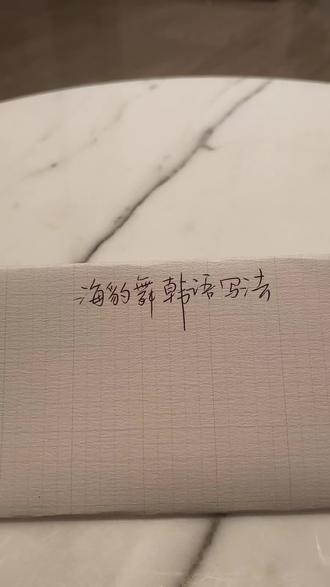 海豹舞韩语写法